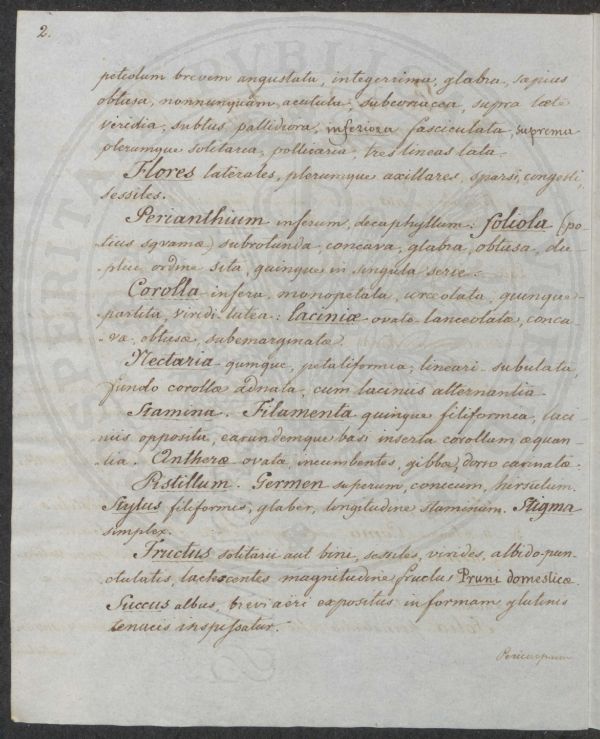 2.
petiolum brevem angustata, integerrima, glabra, sæpius
obtusa, nonnunquam, acutula, subcoriacea, supra læte
viridia, subtus, pallidiora, inferiora fasciculata, suprema
plerumque solitaria, pollicaria, tres lineas lata.
Flores laterales, plerumque axillares, sparsi, congesti,
sessiles.
Perianthium inferum, decaphyllum: foliola (po-
tius squamæ) subrotunda, concava, glabra, obtusa, du-
plici ordine sita, quinque in singula serie.
Corolla infera, monopetala, urceolata, quinque-
partita, viridi-lutea: laciniæ ovato-lanceolatæ, conca-
væ, obtusæ, subemarginatæ.
Nectaria quinque, petaliformia, lineari-subulata,
fundo corollæ adnata, cum laciniis alternantia.
Stamina. Filamenta quinque filiformia, laci-
niis opposita, earundemque basi inserta corollam æquan-
tia. Antheræ ovatæ, incumbentes, gibbæ, dorso carinatæ.
Pistillum. Germen superum, conicum, hirsutum.
Stylus filiformis, glaber, longitudine staminum. Stigma
simplex.
Fructus solitarii aut bini, sessiles, virides, albido-pun-
ctulatis, lactescentes magnitudine fructus Pruni domesticæ.
Succus albus, brevi aëri expositus in formam glutinis
tenacis inspissatur.
Pericarpium
PVBLI